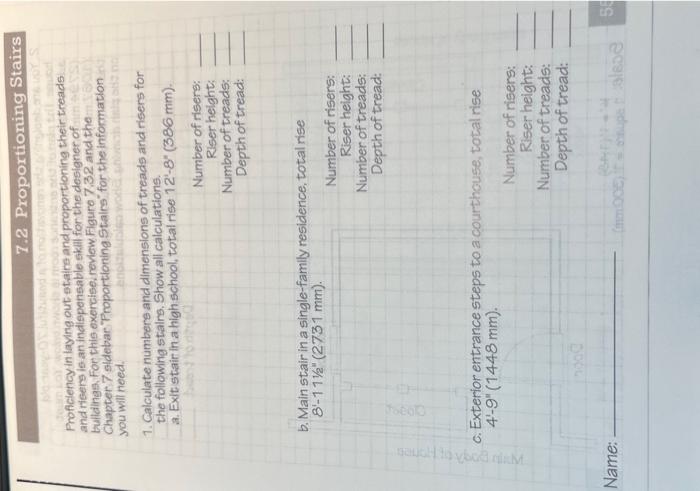 7.2 Proportioning Stairs
Proficiency in laying out stairs and proportioning their treads
and risers is an indispensable skill for the designer of
buildings. For this exercise, review Figure 7.32 and the
Chapter 7 sidebar "Proportioning Stairs" for the information
you will need.
1. Calculate numbers and dimensions of treads and risers for
the following stairs. Show all calculations.
a. Exit stair in a high school, total rise 12'-8" (386 mm).
Number of risers:
Riser height:
Number of treads:
Depth of tread:
b. Main stair in a single-family residence, total rise
8'-11½" (2731 mm).
Number of risers:
Riser height:
Number of treads:
Depth of tread:
c. Exterior entrance steps to a courthouse, total rise
4'-9" (1448 mm).
Number of risers:
Riser height:
Number of treads:
Depth of tread:
Name:
Main Body of House
Closet
Door